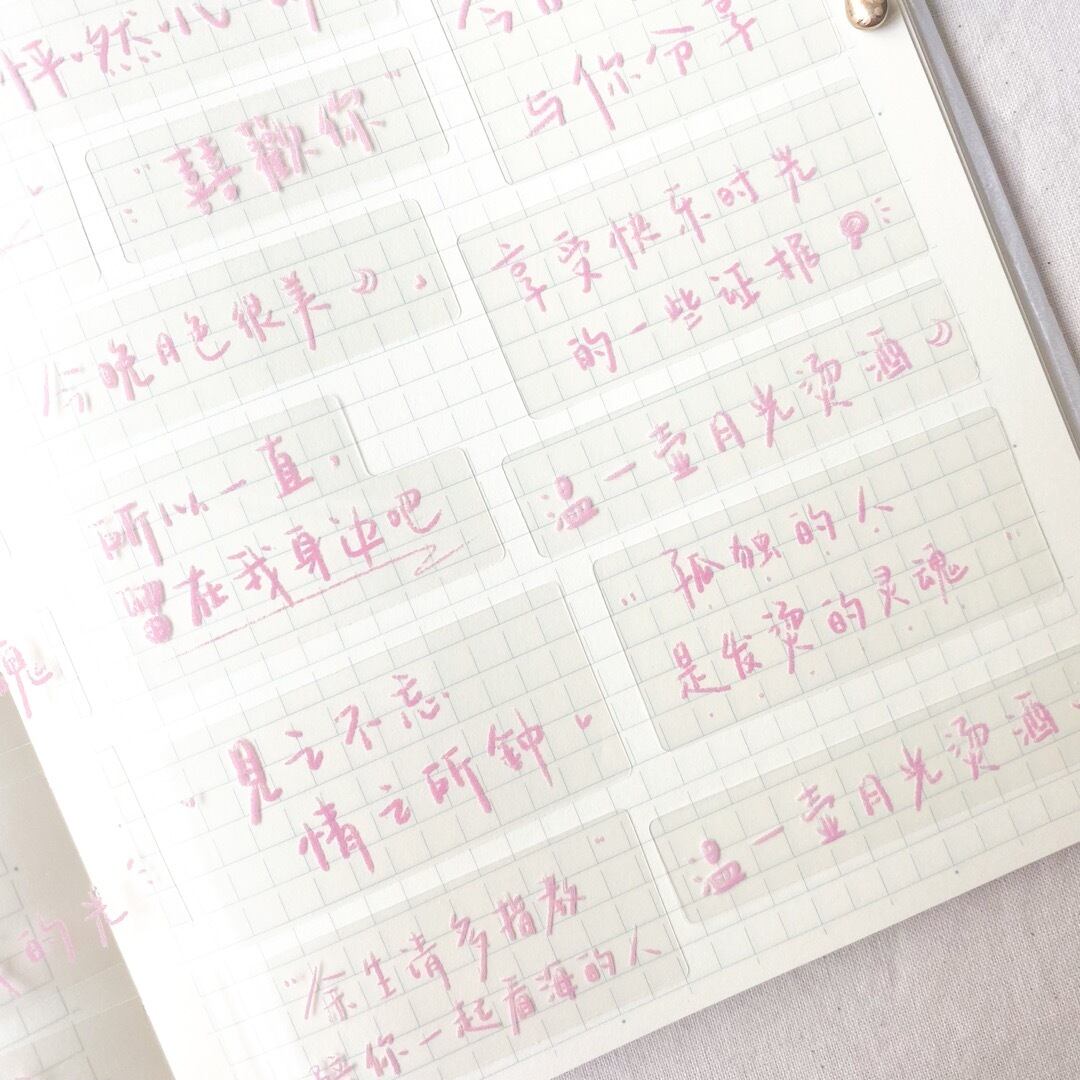 怦然心
喜歡你
今晚月色很美
所以一直
留在我身边吧
見之不忘
情之所鈡
余生请多指教
陪你一起看海的人
与你分享
享受快乐时光
的一些证据
温一壶月光烫酒
孤独的人
是发烫的灵魂
温一壶月光烫酒
魂
的光